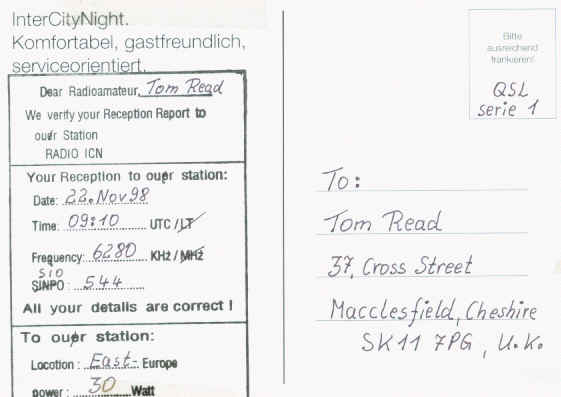 InterCityNight.
Komfortabel, gastfreundlich,
serviceorientiert.
Dear Radioamateur, Tom Read
We verify your Reception Report to
ouer Station
RADIO ICN
Your Reception to ouer station:
Date: 22. Nov 98
Time: 09:10 UTC / LT
Frequency: 6280 KHz / MHz
SIO
SINPO: 544
All your details are correct !
To ouer station:
Locotion: East- Europe
power: 30 Watt
Bitte
ausreichend
frankieren!
QSL
serie 1
To:
Tom Read
37, Cross Street
Macclesfield, Cheshire
SK11 7PG, U.K.